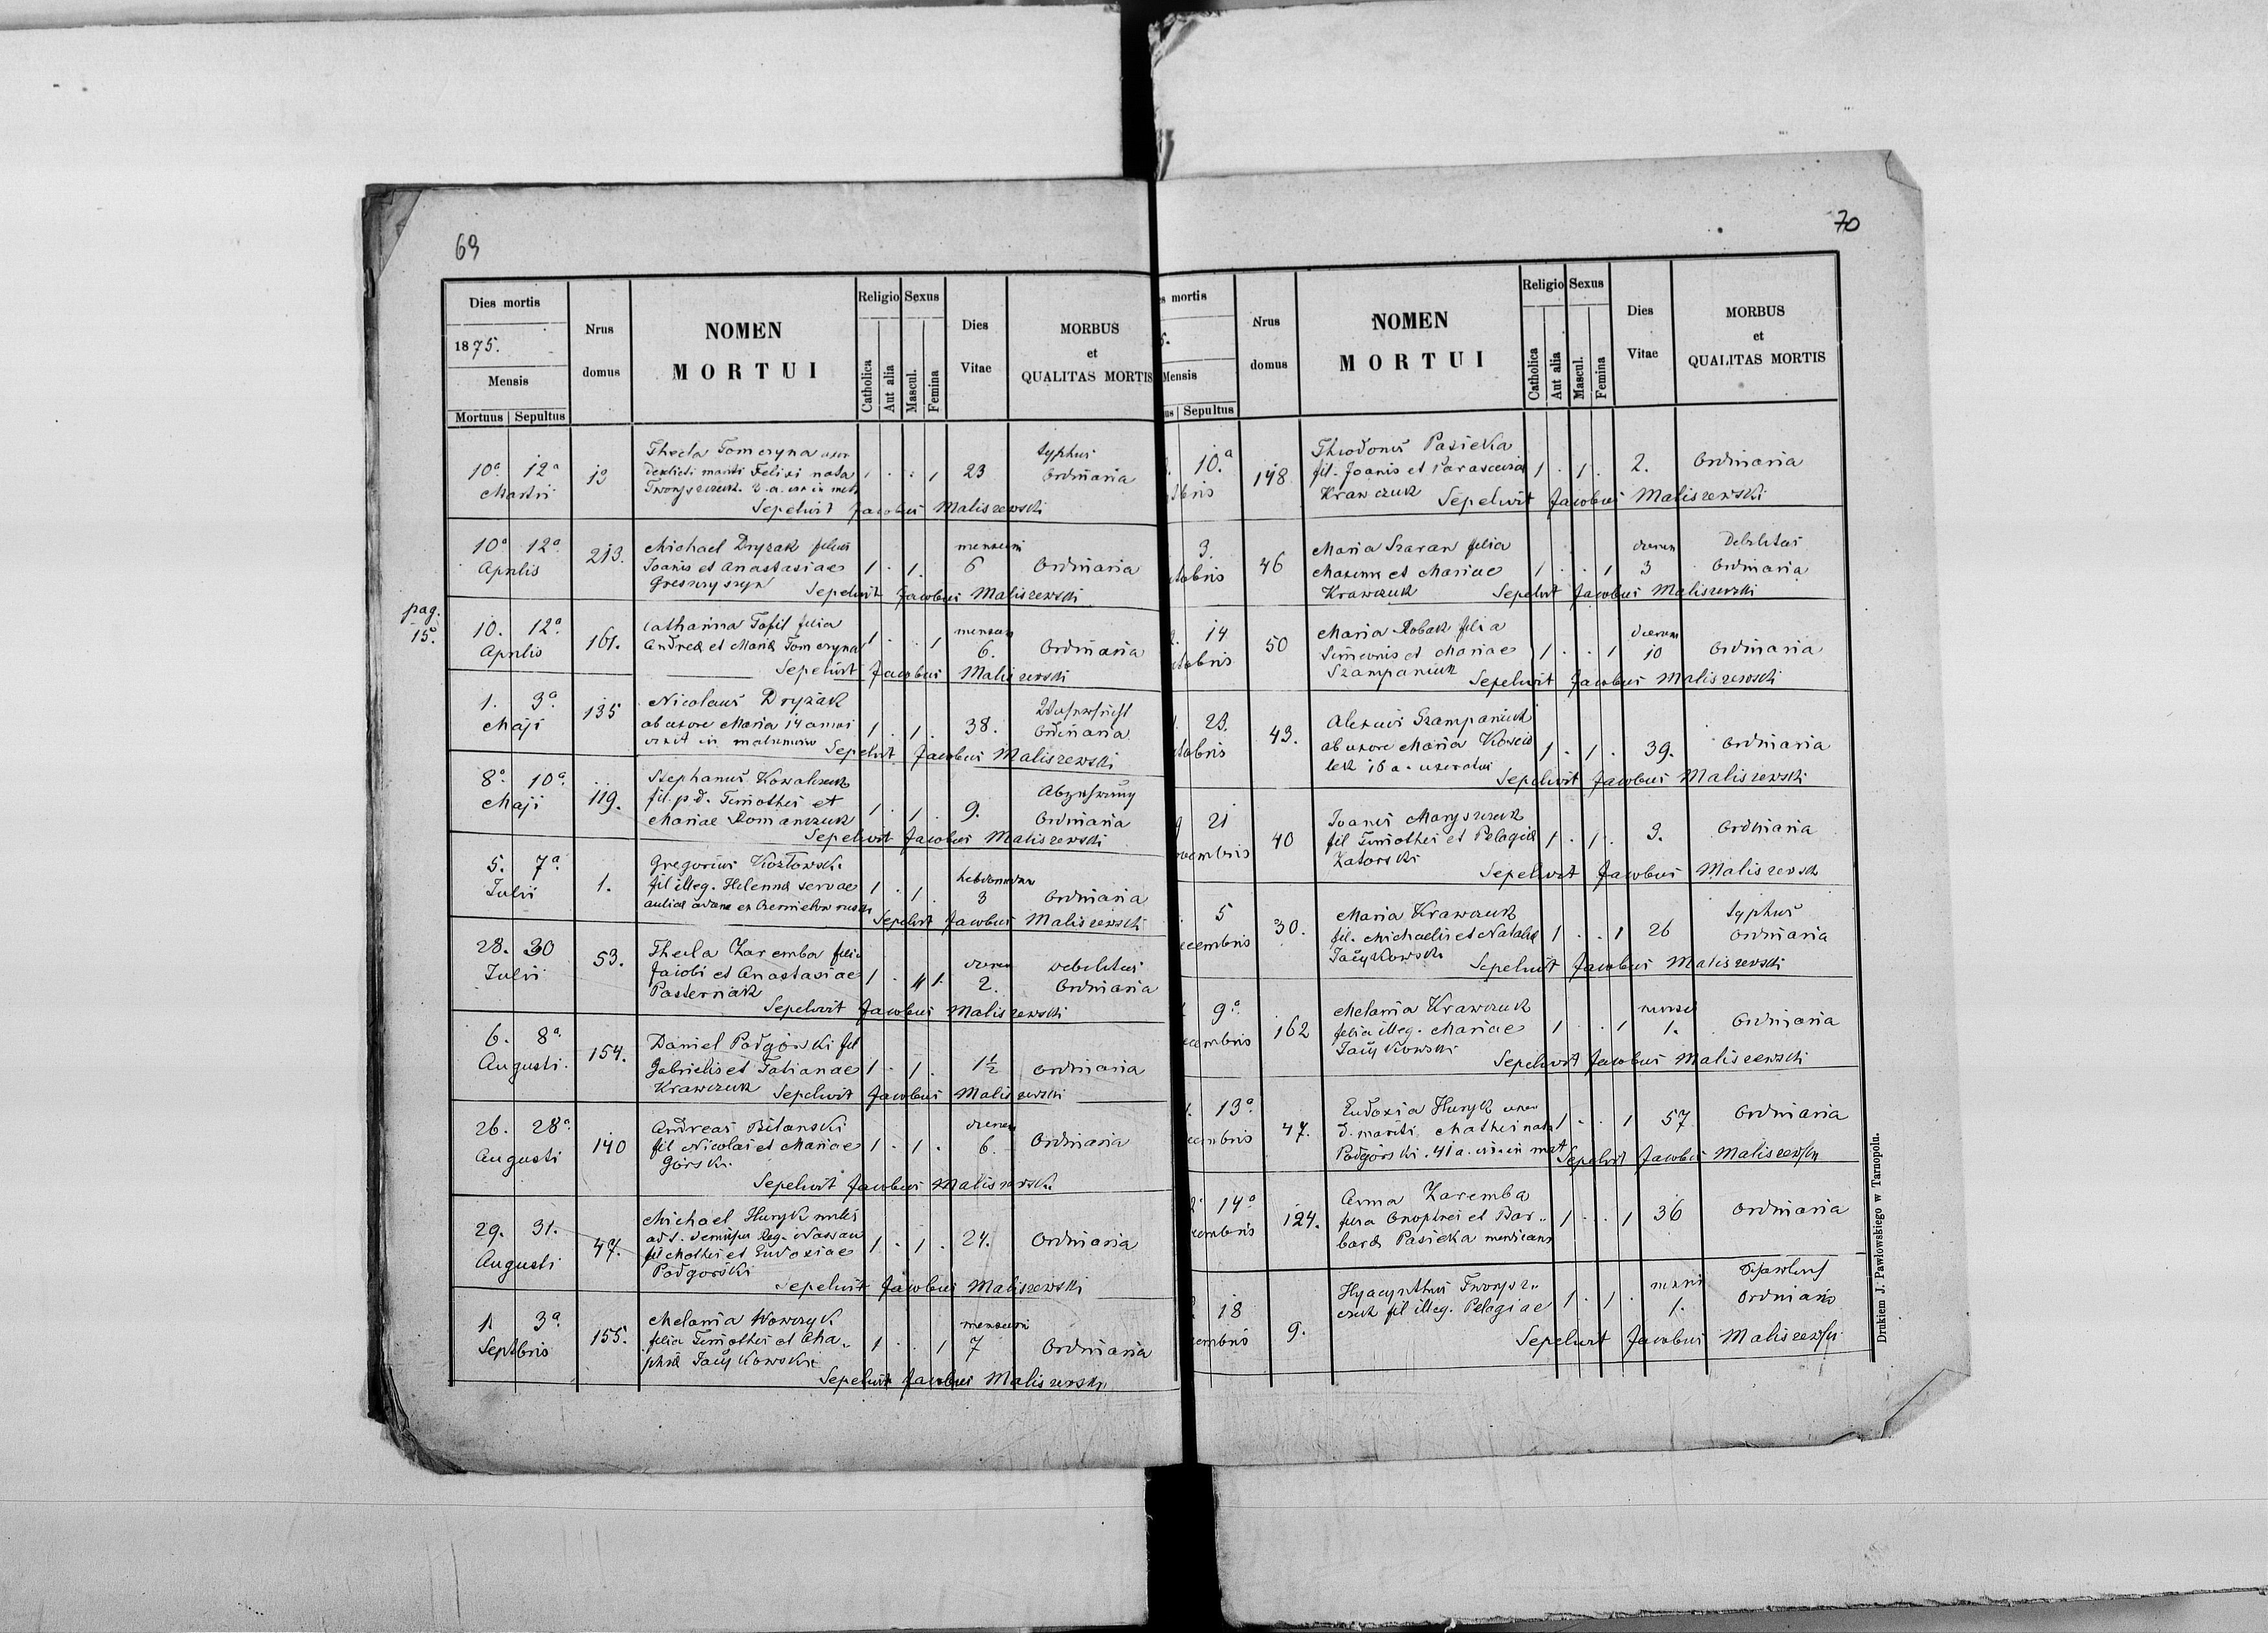 69
Dies mortis
1875.
Mensis
Mortuus Sepultus
Nrus domus
NOMEN
MORTUI
Religio Sexus
Catholica
Aut alia
Mascul.
Femina
Dies Vitae
MORBUS
et
QUALITAS MORTIS
Thecla Tomczyna uxor
10a 12a 19 derelicti mariti Felixi nata 1 . . 1 23 typhus
Martii Ordinaria
Sepelivit Jacobus Maliszewski
10a 12a 213. Michael Dryzak filius mensium
Aprilis Joanis et Anastasiae 1 . 1. 6 Ordinaria
Sepelivit Jacobus Maliszewski
pag.
15.
10. 12a 161. Catharina Tofil filia mensium
Aprilis Andreæ et Mariæ Tomczyna 1 . . 1 6. Ordinaria
Sepelivit Jacobus Maliszewski
1. 3a 135 Nicolaus Dryzak
Maji ab uxore Maria 14 annos 1 . 1 . 38. Ordinaria
vixit in matrimonio
Sepelivit Jacobus Maliszewski
8a 10a 119. Stephanus Kowalczuk
Maji fil. p.d. Timothei et 1 . 1 . 9. Abzehrung
Mariae Romanczuk Ordinaria
Sepelivit Jacobus Maliszewski
5. 7a 1. Gregorius Kozłowski
Julii fil illeg. Helenæ servae 1 . 1 . 3 Ordinaria
Sepelivit Jacobus Maliszewski
28. 30 53. Thecla Zaremba filia dierum debilitas
Julii Jacobi et Anastasiae 1 . 1. 2. Ordinaria
Pasterniak
Sepelivit Jacobus Maliszewski
6. 8a 154. Daniel Podgórski fil
Augusti. Gabrielis et Tatianae 1 . 1 . 1½ Ordinaria
Krawczuk
Sepelivit Jacobus Maliszewski
26. 28a 140 Andreas Bilanski dierum
Augusti fil Nicolai et Mariae 1 . 1 . 6. Ordinaria
Górski.
Sepelivit Jacobus Maliszewski
29. 31. 47. Michael Huryk miles
Augusti Reg. Nassau
fil Mathei et Eudoxiae 1 . 1 . 24. Ordinaria
Podgorski
Sepelivit Jacobus Maliszewski
1. 3a 155. Melania Wowczyk mensium
Septbris filia Timothei et Aga„ 1 . . 1 7 Ordinaria
Sepelivit Jacobus Maliszewski
70
s mortis
5.
Mensis
us Sepultus
Nrus domus
NOMEN
MORTUI
Religio Sexus
Catholica
Aut alia
Mascul.
Femina
Dies Vitae
MORBUS
et
QUALITAS MORTIS
10.a 148 Theodorus Pasieka
fil. Joanis et Parasceviæ 1 . 1 . 2. Ordinaria
Krawczuk
Sepelivit Jacobus Maliszewski
3. 46 Maria Szaran filia dierum Debilitas
tobris Maximi et Mariae 1 . . 1 3 Ordinaria
Krawczuk
Sepelivit Jacobus Maliszewski
14 50 Maria Robak filia dierum
tobris Simeonis et Mariae 1 . . 1 10 Ordinaria
Szampaniuk
Sepelivit Jacobus Maliszewski
23. 43. Alexius Szampaniuk
tobris ab uxore Maria 1 . 1 . 39. Ordinaria
16 a. uxoratus
Sepelivit Jacobus Maliszewski
21 40 Joanes Maryszczuk
vembris fil Timothei et Pelagiæ 1 . 1 . 9. Ordinaria
Zatorski
Sepelivit Jacobus Maliszewski
5 30. Maria Krawczuk typhus
ecembris fil. Michaelis et Nataliæ 1 . . 1 26 Ordinaria
Sepelivit Jacobus Maliszewski
9a 162 Melania Krawczuk mensis
cembris filia illeg. Mariae 1 . . 1 1. Ordinaria
Sepelivit Jacobus Maliszewski
13a 47. Eudoxia Huryk uxor
cembris d. mariti Mathei nata 1 . . 1 57 Ordinaria
Podgórski. 41 a. in mat
Sepelivit Jacobus Maliszewski
14a 124. Anna Zaremba
cembris filia Onophrei et Bar„ 1 . . 1 36 Ordinaria
baræ Pasieka mendicans
18 9. Hyacynthus Tworysz„ mensis
embris czuk fil illeg. Pelagiae 1 . 1 . 1. Ordinaria
Sepelivit Jacobus Maliszewski
Drukiem J. Pawłowskiego w Tarnopolu.